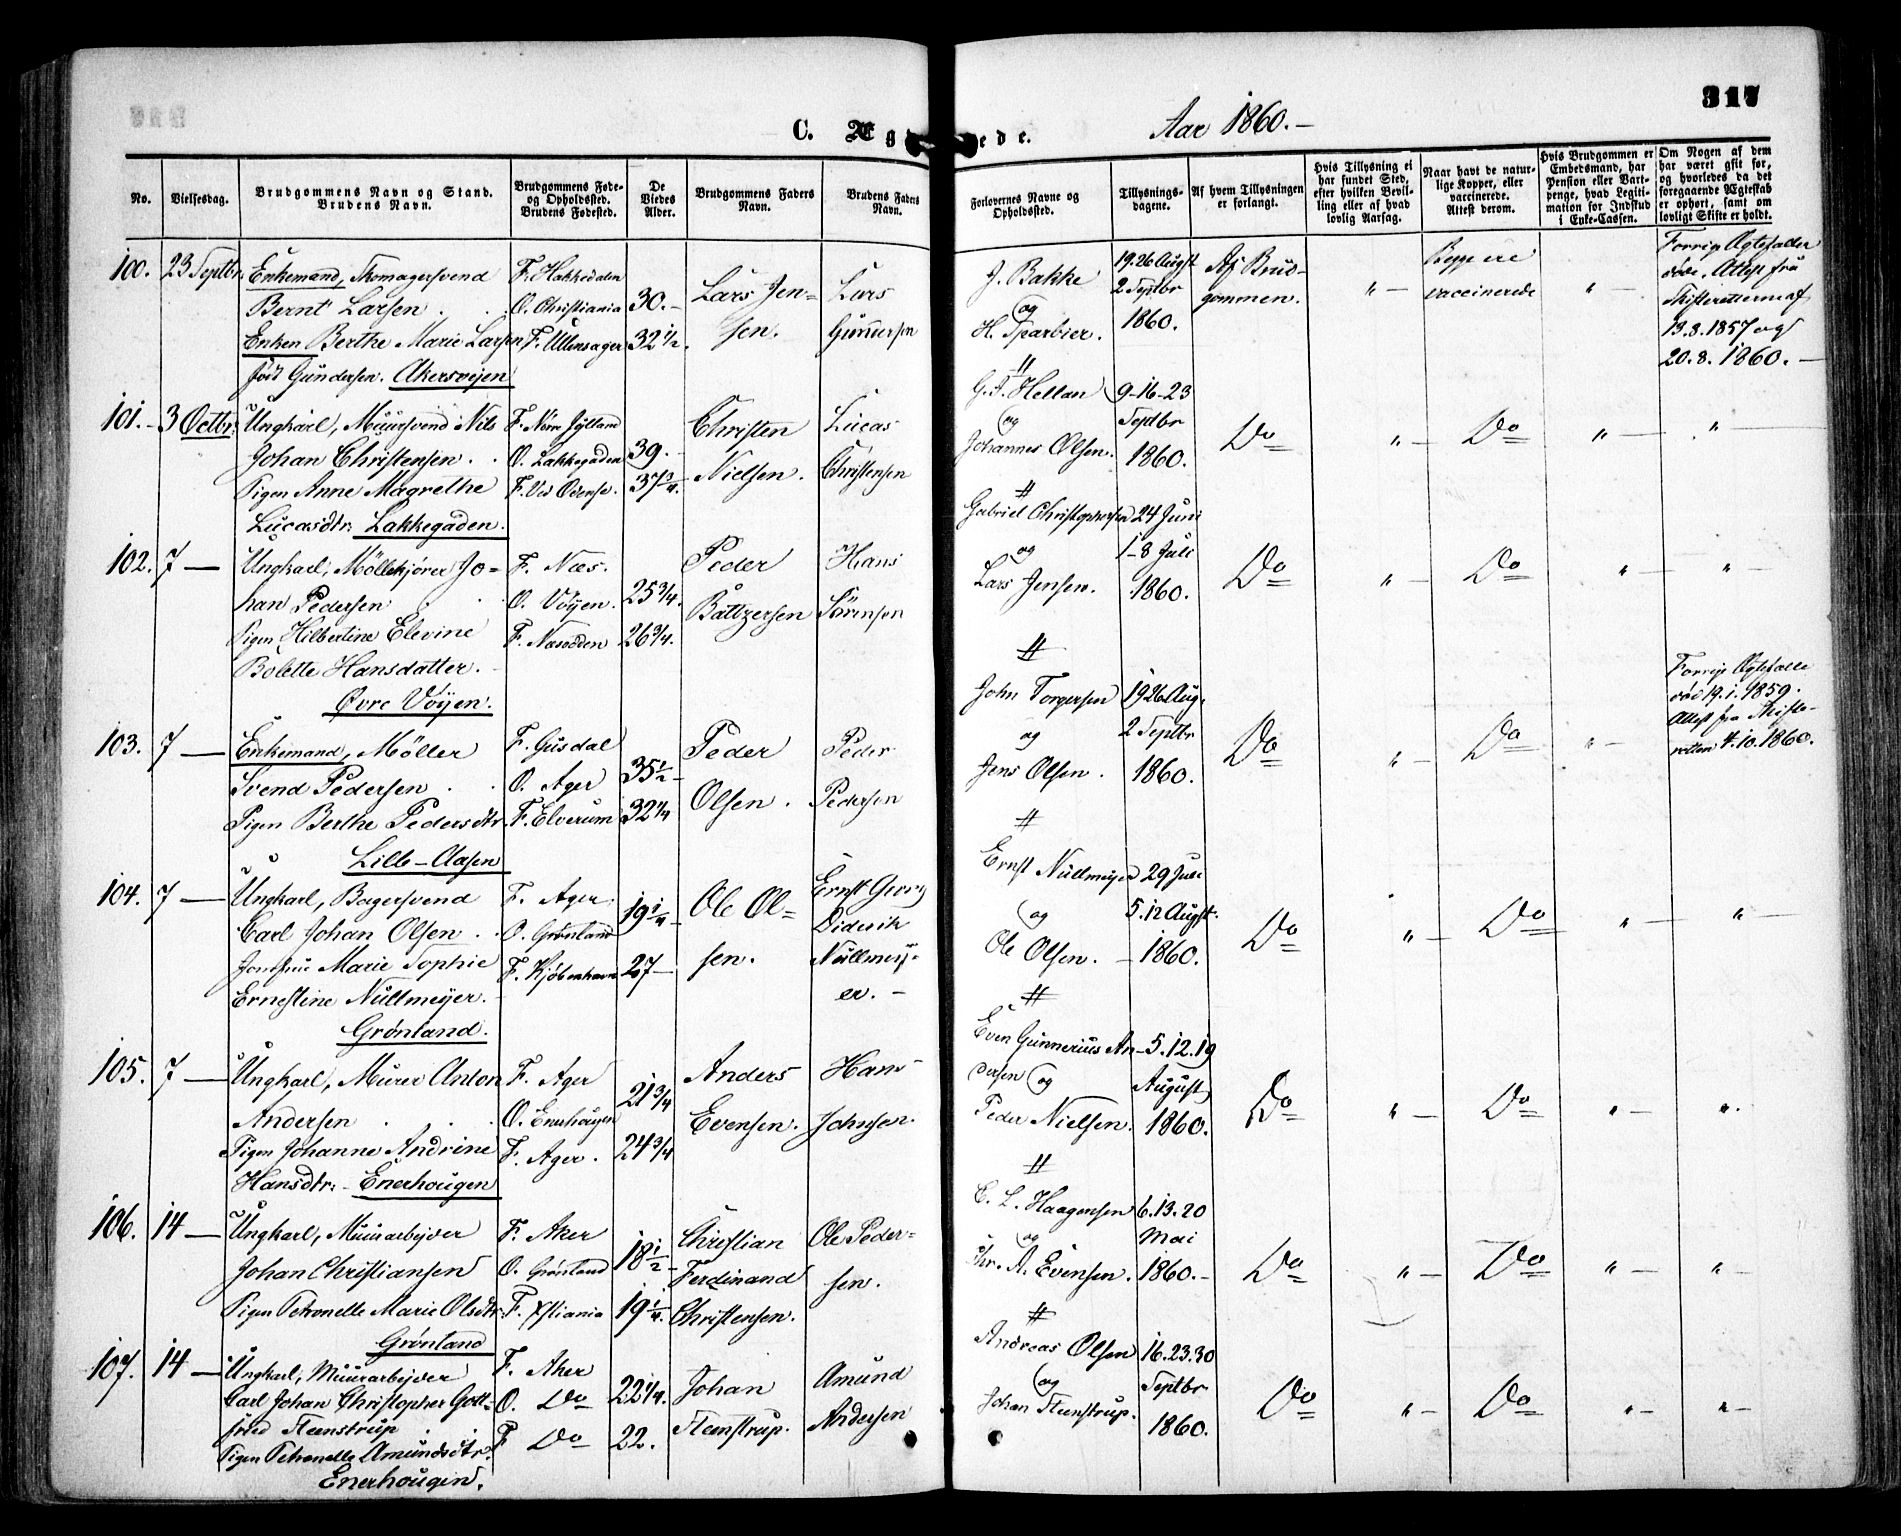 317
C. Ægteviede.
Aar 1860.-
No.
Vielsesdag.
Brudgommens Navn og Stand.
Brudens Navn.
Brudgommens Føde-
og Opholdssted.
Brudens Fødested.
De
Viedes
Alder.
Brudgommens Faders
Navn.
Brudens Faders
Navn.
Forlovernes Navne og
Opholdssted.
Tillysnings-
dagene.
Af hvem Tillysningen
er forlangt.
Hvis Tillysning ei
har fundet Sted,
efter hvilken Bevil-
ling eller af hvad
lovlig Aarsag.
Naar havt de natur-
lige Kopper, eller
vaccinerede.
Attest derom.
Hvis Brudgommen er
Embedsmand, har
Pension eller Vart-
penge, hvad Legiti-
mation for Indskud
i Enke-Cassen.
Om Nogen af dem
har været gift før,
og hvorledes da det
foregaaende Ægteskab
er ophørt, samt om
lovligt Skifte er holdt.
100. 23 Septbr.
Enkemand, Skomagersvend
Bernt Larsen
Enken Berthe Marie Larsen
født Gundersen. Akersveien
F. Hakkedalen
O. Christiania
F. Ullensager
30.-
32 1/2.
Lars Jen=
sen.
Lars
Gundersen
J. Bakke
og
H. Sparbier.
19. 26 August
2 Septbr
1860.
Af Brud-
gommen.
" -
Begge ere
vaccinerede
" -
Forrige Ægtefæller
døde. Attest fra
Skifteretterne af
13.8.1857 og
20.8.1860. -
101. - 3 Octbr.
Ungkarl, Muursvend Nils
Johan Christensen
Pigen Anne Magrethe
Lucasdtr: Lakkegaden.
F. Nörre Jylland
O. Lakkegaden
F. Ved Odense.
39.
37 3/4.
Christen
Nielsen.
Lucas
Christensen
G. A. Hellan
og
Johannes Olsen.
9-16-23
Septbr
1860.
Do
" -
Do
" -
" -
102. 7 -
Ungkarl, Möllekjörer Jo=
han Pedersen
Pigen Hilbertine Elevine
Bolette Hansdatter.
Øvre Vöyen.
F. Næs.
O. Vöyen.
F. Næsodden
25 3/4.
26 3/4.
Peder
Baltzersen
Hans
Sörensen
Gabriel Christophersen
og
Lars Jensen.
24 Juni
1-8 Juli
1860.
Do
" -
Do
" -
" -
103. 7 -
Enkemand, Möller
Svend Pedersen
Pigen Berthe Pedersdtr.
Lille-Aasen
F. Gusdal
O. Ager
F. Elverum
35 1/2
32 1/4
Peder
Olsen.
Peder
Pedersen
John Torgersen
og
Jens Olsen.
19 26 Aug.
2 Septbr
1860.
Do
" -
Do
" -
Forrige Ægtefælle
död 19.1.1859.
Attest fra Skifte-
retten 4.10.1860.
104. 7 -
Ungkarl, Bagersvend
Carl Johan Olsen
Jomfrue Marie Sophie
Ernestine Nüllmeyer.
Grönland.
F. Ager.
O. Grönland
F. Kjöbenhavn
19 1/4
27 -
Ole Ol=
sen.
Ernst Georg
Diderik
Nüllmey=
er. -
Ernst Nullmeyer
og
Ole Olsen.
29 Juli
5. 12 August.
1860.
Do
" -
Do
" -
" -
105. 7 -
Ungkarl, Murer Anton
Andersen
Pigen Johanne Andrine
Hansdtr: Enerhougen
F. Ager
O. Enerhougen
F. Ager.
21 3/4
24 3/4
Anders
Evensen.
Hans
Johnsen.
Even Gunnerius An-
dersen og
Peder Nielsen.
5. 12. 19
August
1860.
Do
" -
Do
" -
".
106. 14 -
Ungkarl, Muurarbejder
Johan Christiansen
Pigen Petronelle Marie Olsdtr:
Grönland
F. Aker
O. Grönland
F. Xstiania
18 1/2
19 1/4.
Christian
Ferdinand
Christensen.
Ole Peder=
sen.
C. L. Haagensen
og
Chr. A. Evensen.
6. 13. 20
Mai
1860.-
Do
" -
Do
" -
" -
107. 14 -
Ungkarl, Muurarbejder
Carl Johan Christopher Gott=
fried Steenstrup
Pigen Petronelle Amundsdtr.
Enerhougen.
F. Aker
O. Do
F Do
22 1/4.
22.
Johan
Steenstrup.
Amund
Andersen
Andreas Olsen
og
Johan Steenstrup.
16. 23. 30
Septbr
1860.
Do
" -
Do
" -
" -